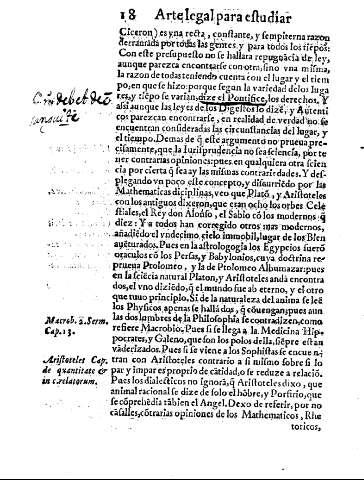 18 Arte legal para estudiar
Ciceron) es vna recta, constante, y sempiterna razon
derramada por todas las gentes, y para todos los tiēpos:
Con este presupuesto no se hallara repugnãcia de ley,
aunque parezca encontrarse con otra, sino vna misma,
la razon de todas teniendo cuenta con el lugar y el tiem
po, en que se hizo: porque segun la variedad de los luga
res, y tiēpo se varian, dize el Pontifice, los derechos. Y
assi aunque las leyes de los Digestos lo dizē, y Autenti
cos parezcan encontrarse, en realidad de verdad no se
encuentran consideradas las circunstancias del lugar, y
el tiempo. Demas de q̃ este argumento no prueua pre-
cisamente, que la Iurisprudencia no sea sciencia, por te
ner contrarias opiniones: pues en qualquiera otra scien
cia por cierta q̃ sea ay las mismas contrariedades. Y des
plegando vn poco este concepto, y discurriēdo por las
Mathematicas diciplinas, veo que Platō, y Aristoteles
con los antiguos dixeron, que eran ocho los orbes Cele
stiales, el Rey don Alonso, el Sabio cō los modernos q̃
diez: Y a todos han corregido otros mas modernos,
añadiēdo el vndecimo cielo immobil, lugar de los Bien
auēturados. Pues en la astrologia los Egypcios fuerō
oraculos cō los Persas, y Babylonios, cuya doctrina re-
prueua Ptolomeo, y la de Ptolomeo Albumazar: pues
en la sciēcia natural Platon, y Aristoteles andã encontra
dos, el vno diziēdo, q̃ el mundo fue ab eterno, y el otro
que tuuo principio. Si de la naturaleza del anima se leē
los Physicos, apenas se hallã dos, q̃ cōuengan; pues aun
las dos lumbres de la Philosophia se contradizen, como
refiere Macrobio. Pues si se llega a la Medicina Hip-
pocrates, y Galeno, que son los polos della, siēpre estan
vãderizados. Pues si se viene a los Sophistas se encuen
tran con Aristoteles contrario a si mismo sobre si lo
par y impar es proprio de cãtidad, o se reduze a relaciō.
Pues los dialecticos no ignorã, q̃ Aristoteles dixo, que
animal racional se dize de solo el hōbre, y Porfirio, que
se cōprehēdia tãbien el Angel. Dexo de referir, por no
cãsalles, cōtrarias opiniones de los Mathematicos, Rhe
toricos,
Macrob. 2. Som.
Cap. 13.
Aristoteles Cap.
de quantitate &
in c. relatorum.